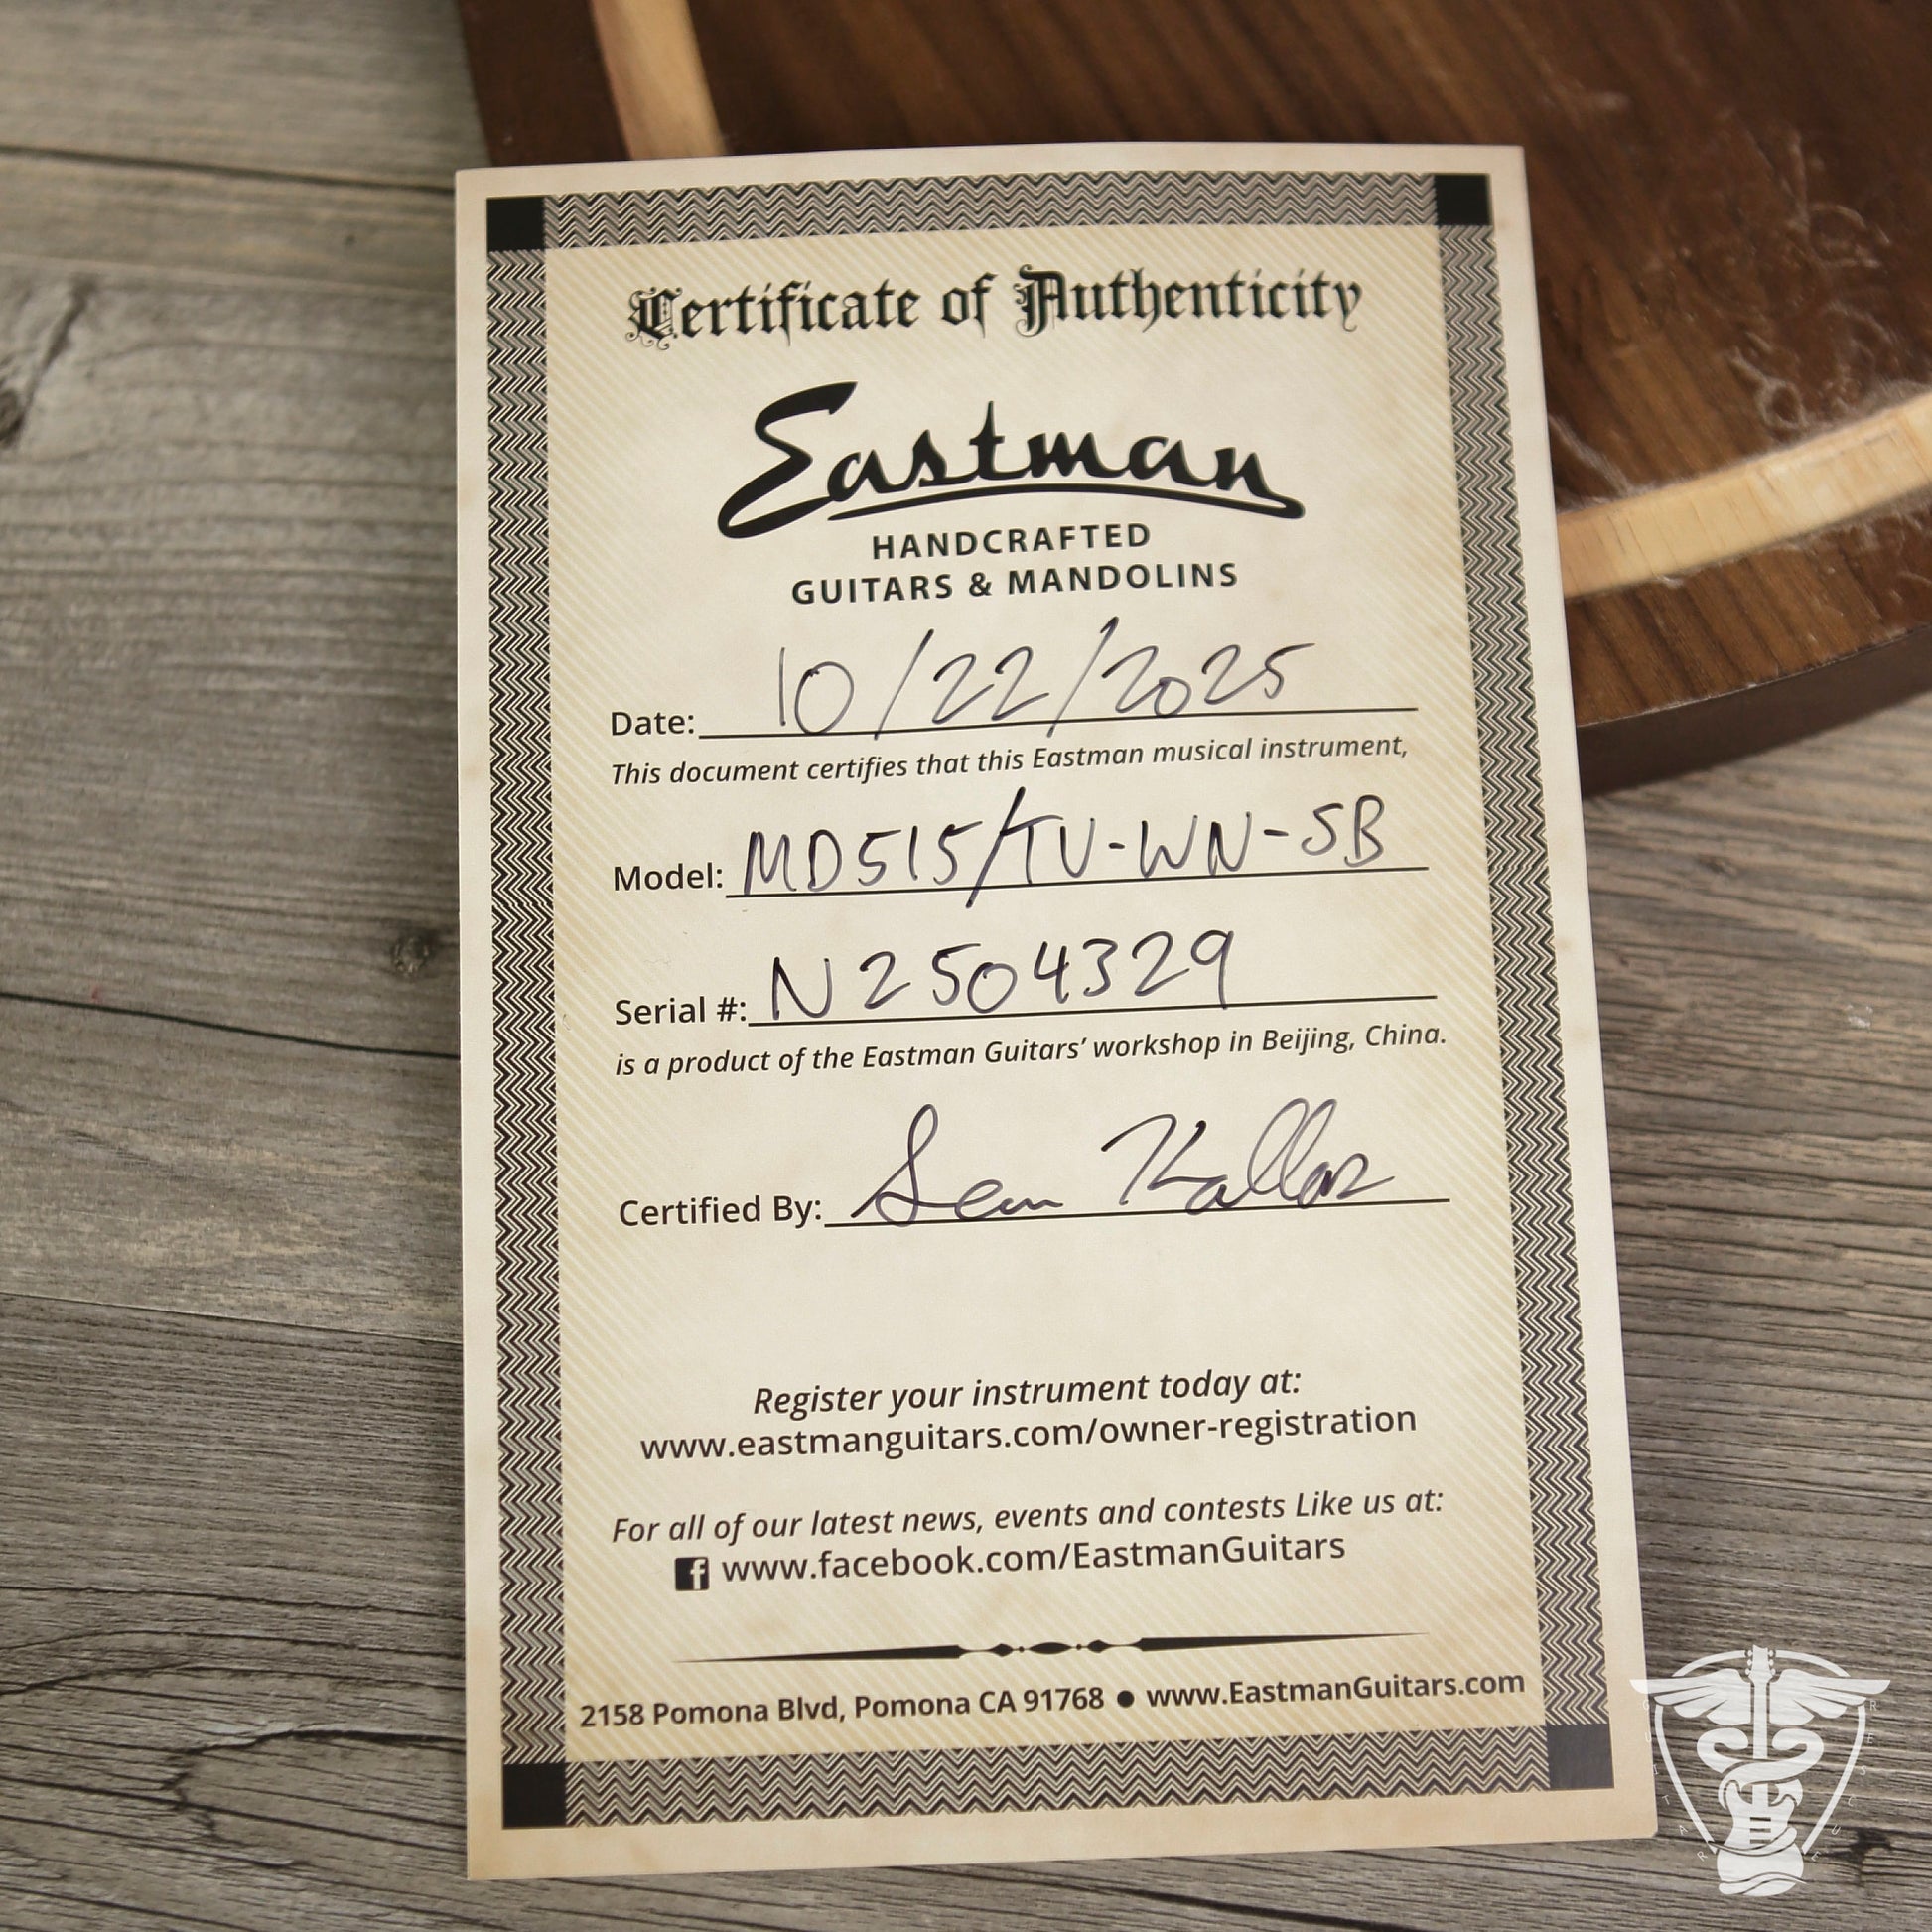 Certificate of Authenticity
Eastman
HANDCRAFTED
GUITARS & MANDOLINS
Date: 10/22/2025
This document certifies that this Eastman musical instrument,
Model: MD515/TV-WN-SB
Serial #: N2504329
is a product of the Eastman Guitars' workshop in Beijing, China.
Certified By:
Register your instrument today at:
www.eastmanguitars.com/owner-registration
For all of our latest news, events and contests Like us at:
f www.facebook.com/EastmanGuitars
2158 Pomona Blvd, Pomona CA 91768 ● www.EastmanGuitars.com
GUITAR RESCUE